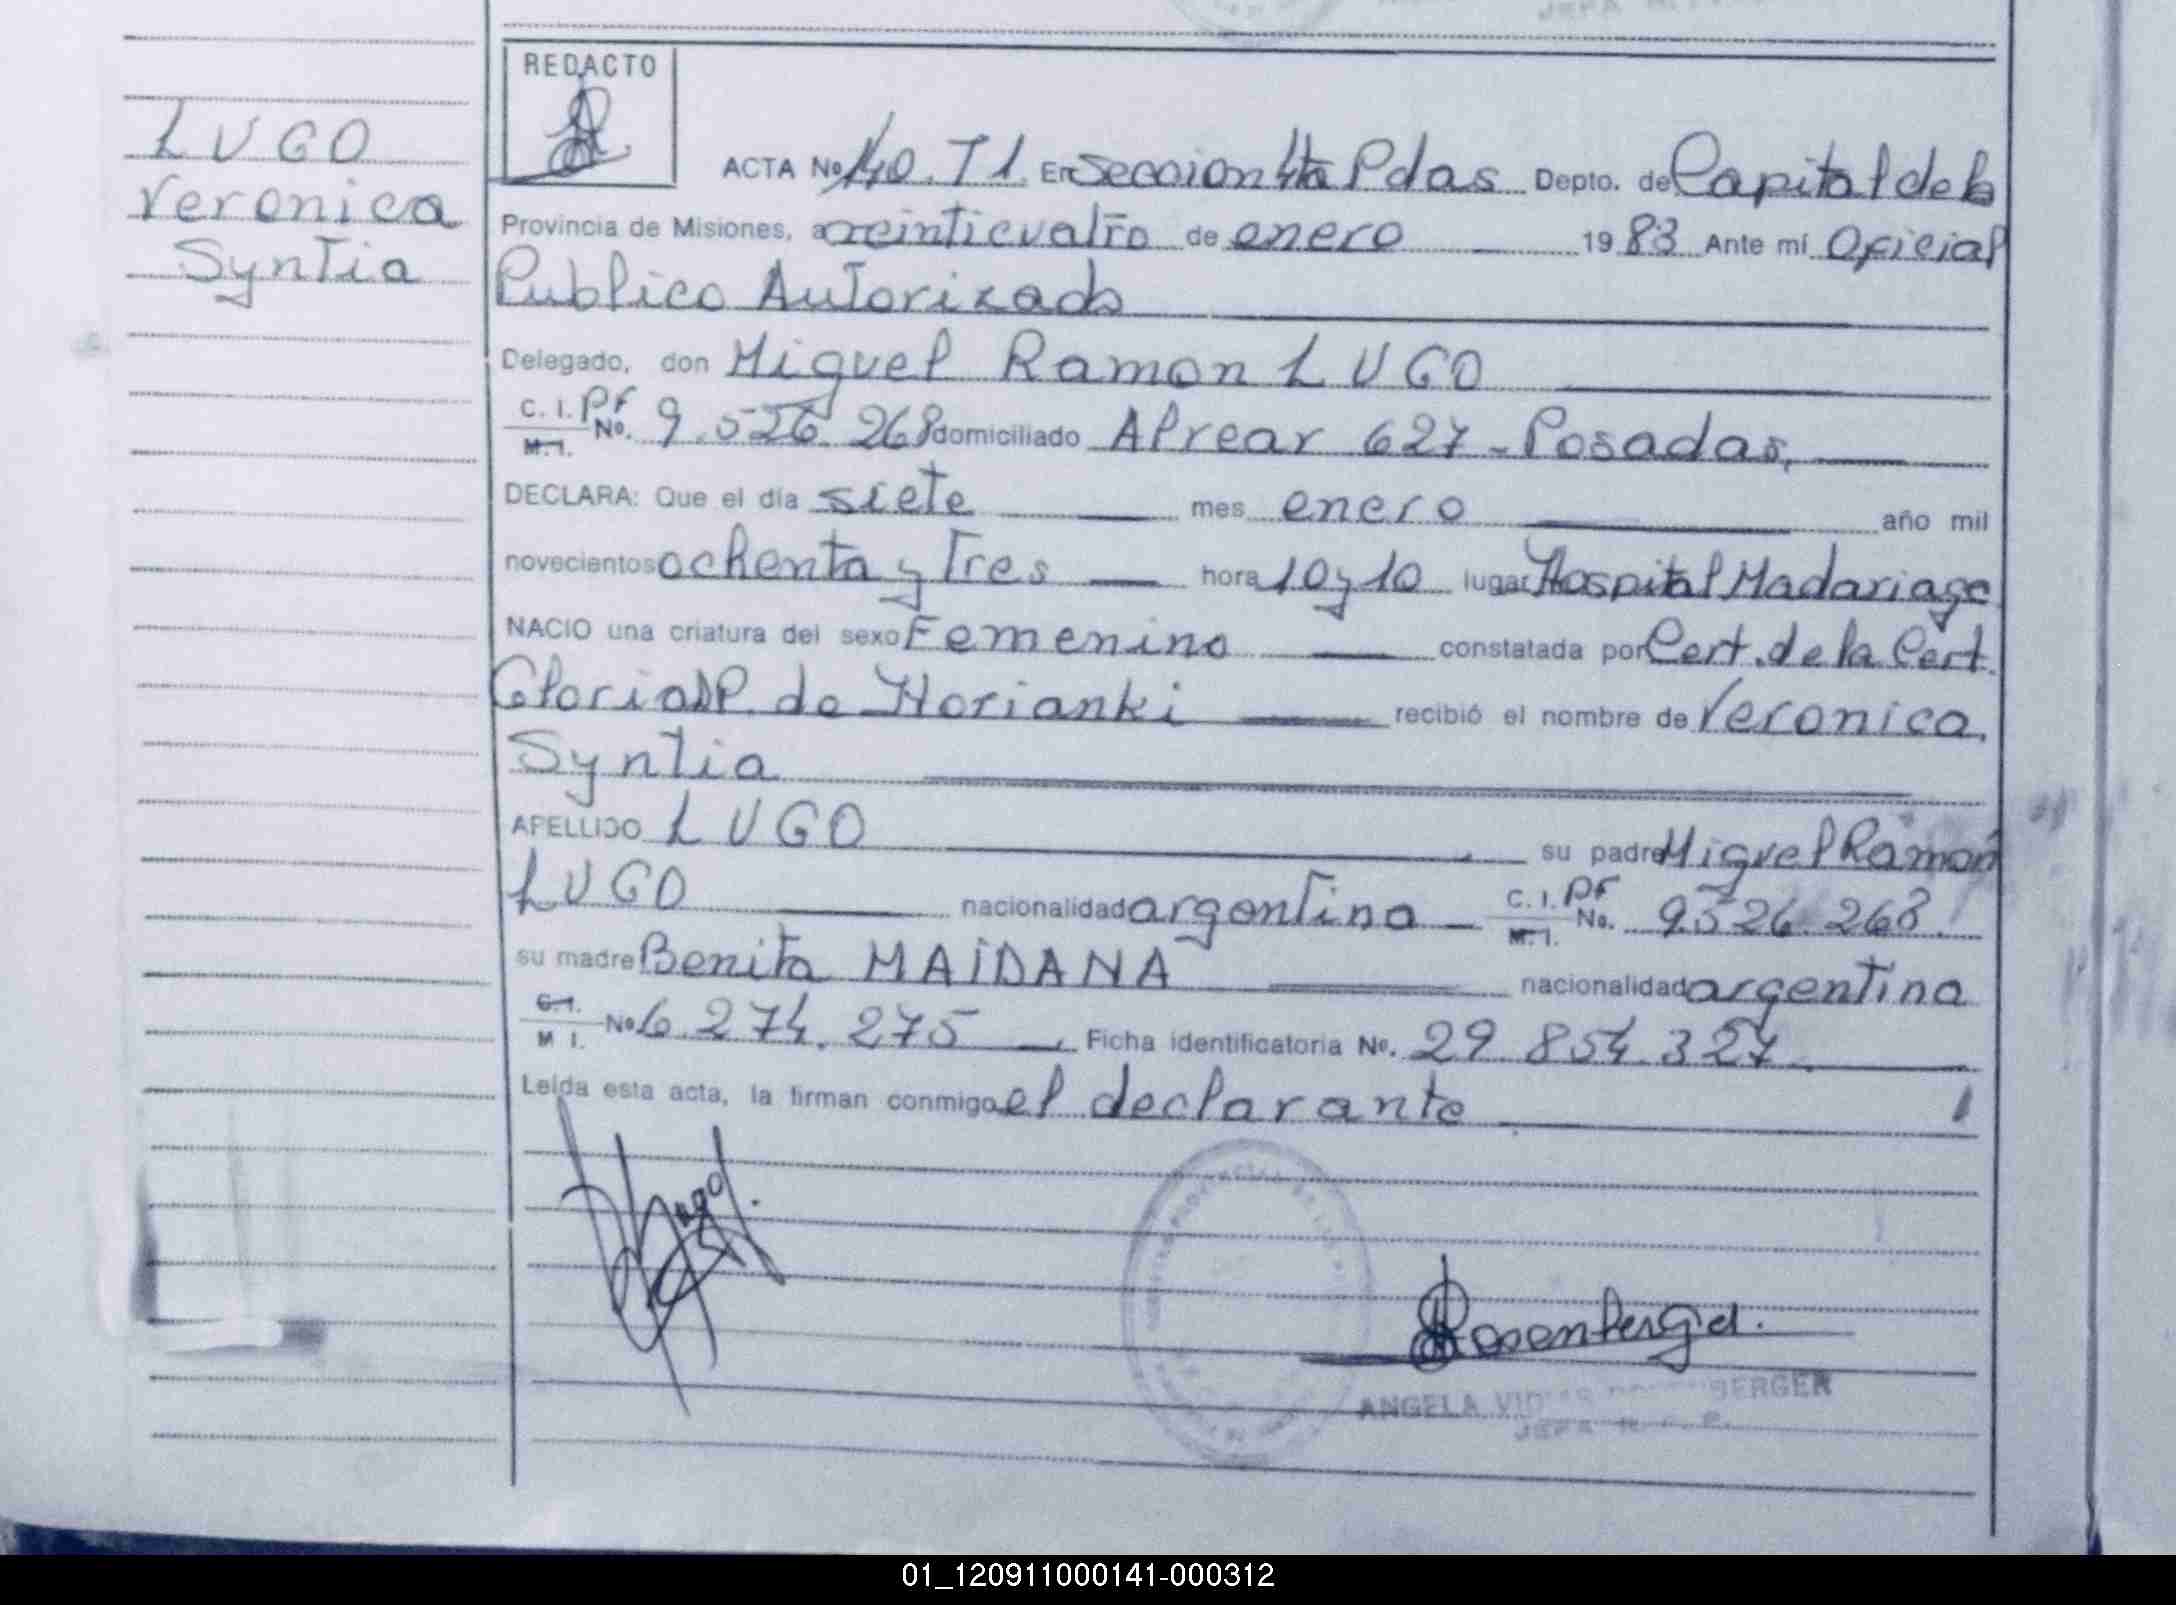 REDACTO
LUGO
Veronica
Syntia
ACTA No 140. T1. En Seccion 4ta Pdas Depto. de Capital de la
Provincia de Misiones, a veinticuatro de enero 1983 Ante mí Oficial
Publico Autorizado
Delegado, don Miguel Ramon LUGO
C. I. Pf
M. I. No. 9.526.268 domiciliado Alvear 627 - Posadas,
DECLARA: Que el día siete mes enero año mil
novecientos ochenta y Tres hora 10 y 10 lugar Hospital Madariaga
NACIO una criatura del sexo Femenino constatada por Cert. de la Part.
Gloria P. de Horianki recibió el nombre de Veronica
Syntia
APELLIDO LUGO su padre Miguel Ramon
LUGO nacionalidad argentina C. I. Pf
M. I. No. 9.526.268
su madre Benita MAIDANA nacionalidad argentina
C. I.
M I. No 6.274.275 Ficha identificatoria No. 29.854.327
Leída esta acta, la firman conmigo el declarante
ANGELA BERGER
JEFA
01_120911000141-000312